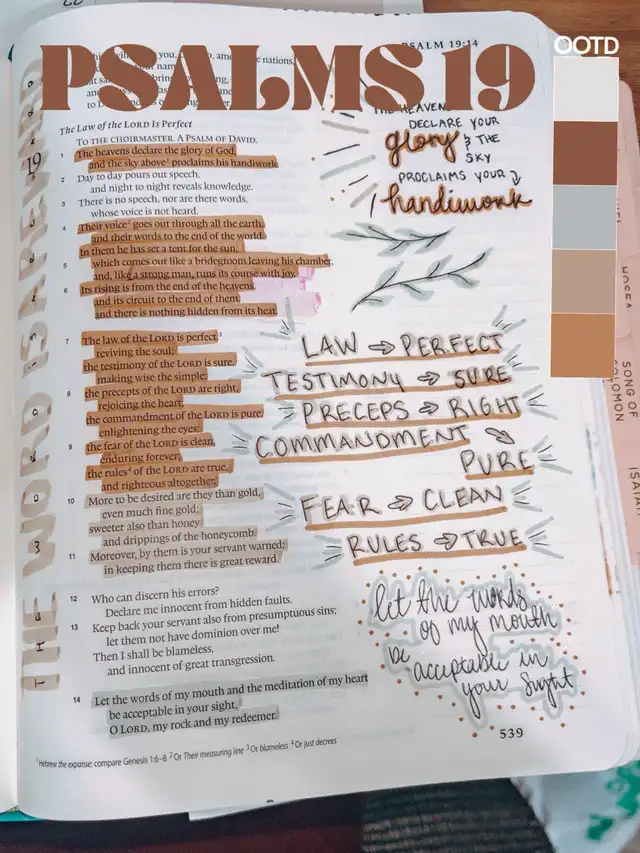 PSALMS 19
OOTD
PSALM 19:14
The Law of the LORD Is Perfect
TO THE CHOIRMASTER. A PSALM OF DAVID.
19
1 The heavens declare the glory of God,
and the sky above¹ proclaims his handiwork.
2 Day to day pours out speech,
and night to night reveals knowledge.
3 There is no speech, nor are there words,
whose voice is not heard.
4 Their voice² goes out through all the earth,
and their words to the end of the world.
In them he has set a tent for the sun,
5 which comes out like a bridegroom leaving his chamber,
and, like a strong man, runs its course with joy.
6 Its rising is from the end of the heavens,
and its circuit to the end of them,
and there is nothing hidden from its heat.
7 The law of the LORD is perfect,³
reviving the soul;
the testimony of the LORD is sure,
making wise the simple;
8 the precepts of the LORD are right,
rejoicing the heart;
the commandment of the LORD is pure,
enlightening the eyes;
9 the fear of the LORD is clean,
enduring forever;
the rules⁴ of the LORD are true,
and righteous altogether.
10 More to be desired are they than gold,
even much fine gold;
sweeter also than honey
and drippings of the honeycomb.
11 Moreover, by them is your servant warned;
in keeping them there is great reward.
12 Who can discern his errors?
Declare me innocent from hidden faults.
13 Keep back your servant also from presumptuous sins;
let them not have dominion over me!
Then I shall be blameless,
and innocent of great transgression.
14 Let the words of my mouth and the meditation of my heart
be acceptable in your sight,
O LORD, my rock and my redeemer.
¹Hebrew the expanse; compare Genesis 1:6–8 ²Or Their measuring line ³Or blameless ⁴Or just decrees
THE HEAVENS
DECLARE YOUR
glory & THE
SKY
PROCLAIMS YOUR
handiwork
LAW ⇒ PERFECT
TESTIMONY ⇒ SURE
PRECEPS ⇒ RIGHT
COMMANDMENT ⇒
PURE
FEAR ⇒ CLEAN
RULES ⇒ TRUE
let the words
of my mouth
be acceptable in
your sight
539
HOSEA
SONG OF
SOLOMON
ISAIAH